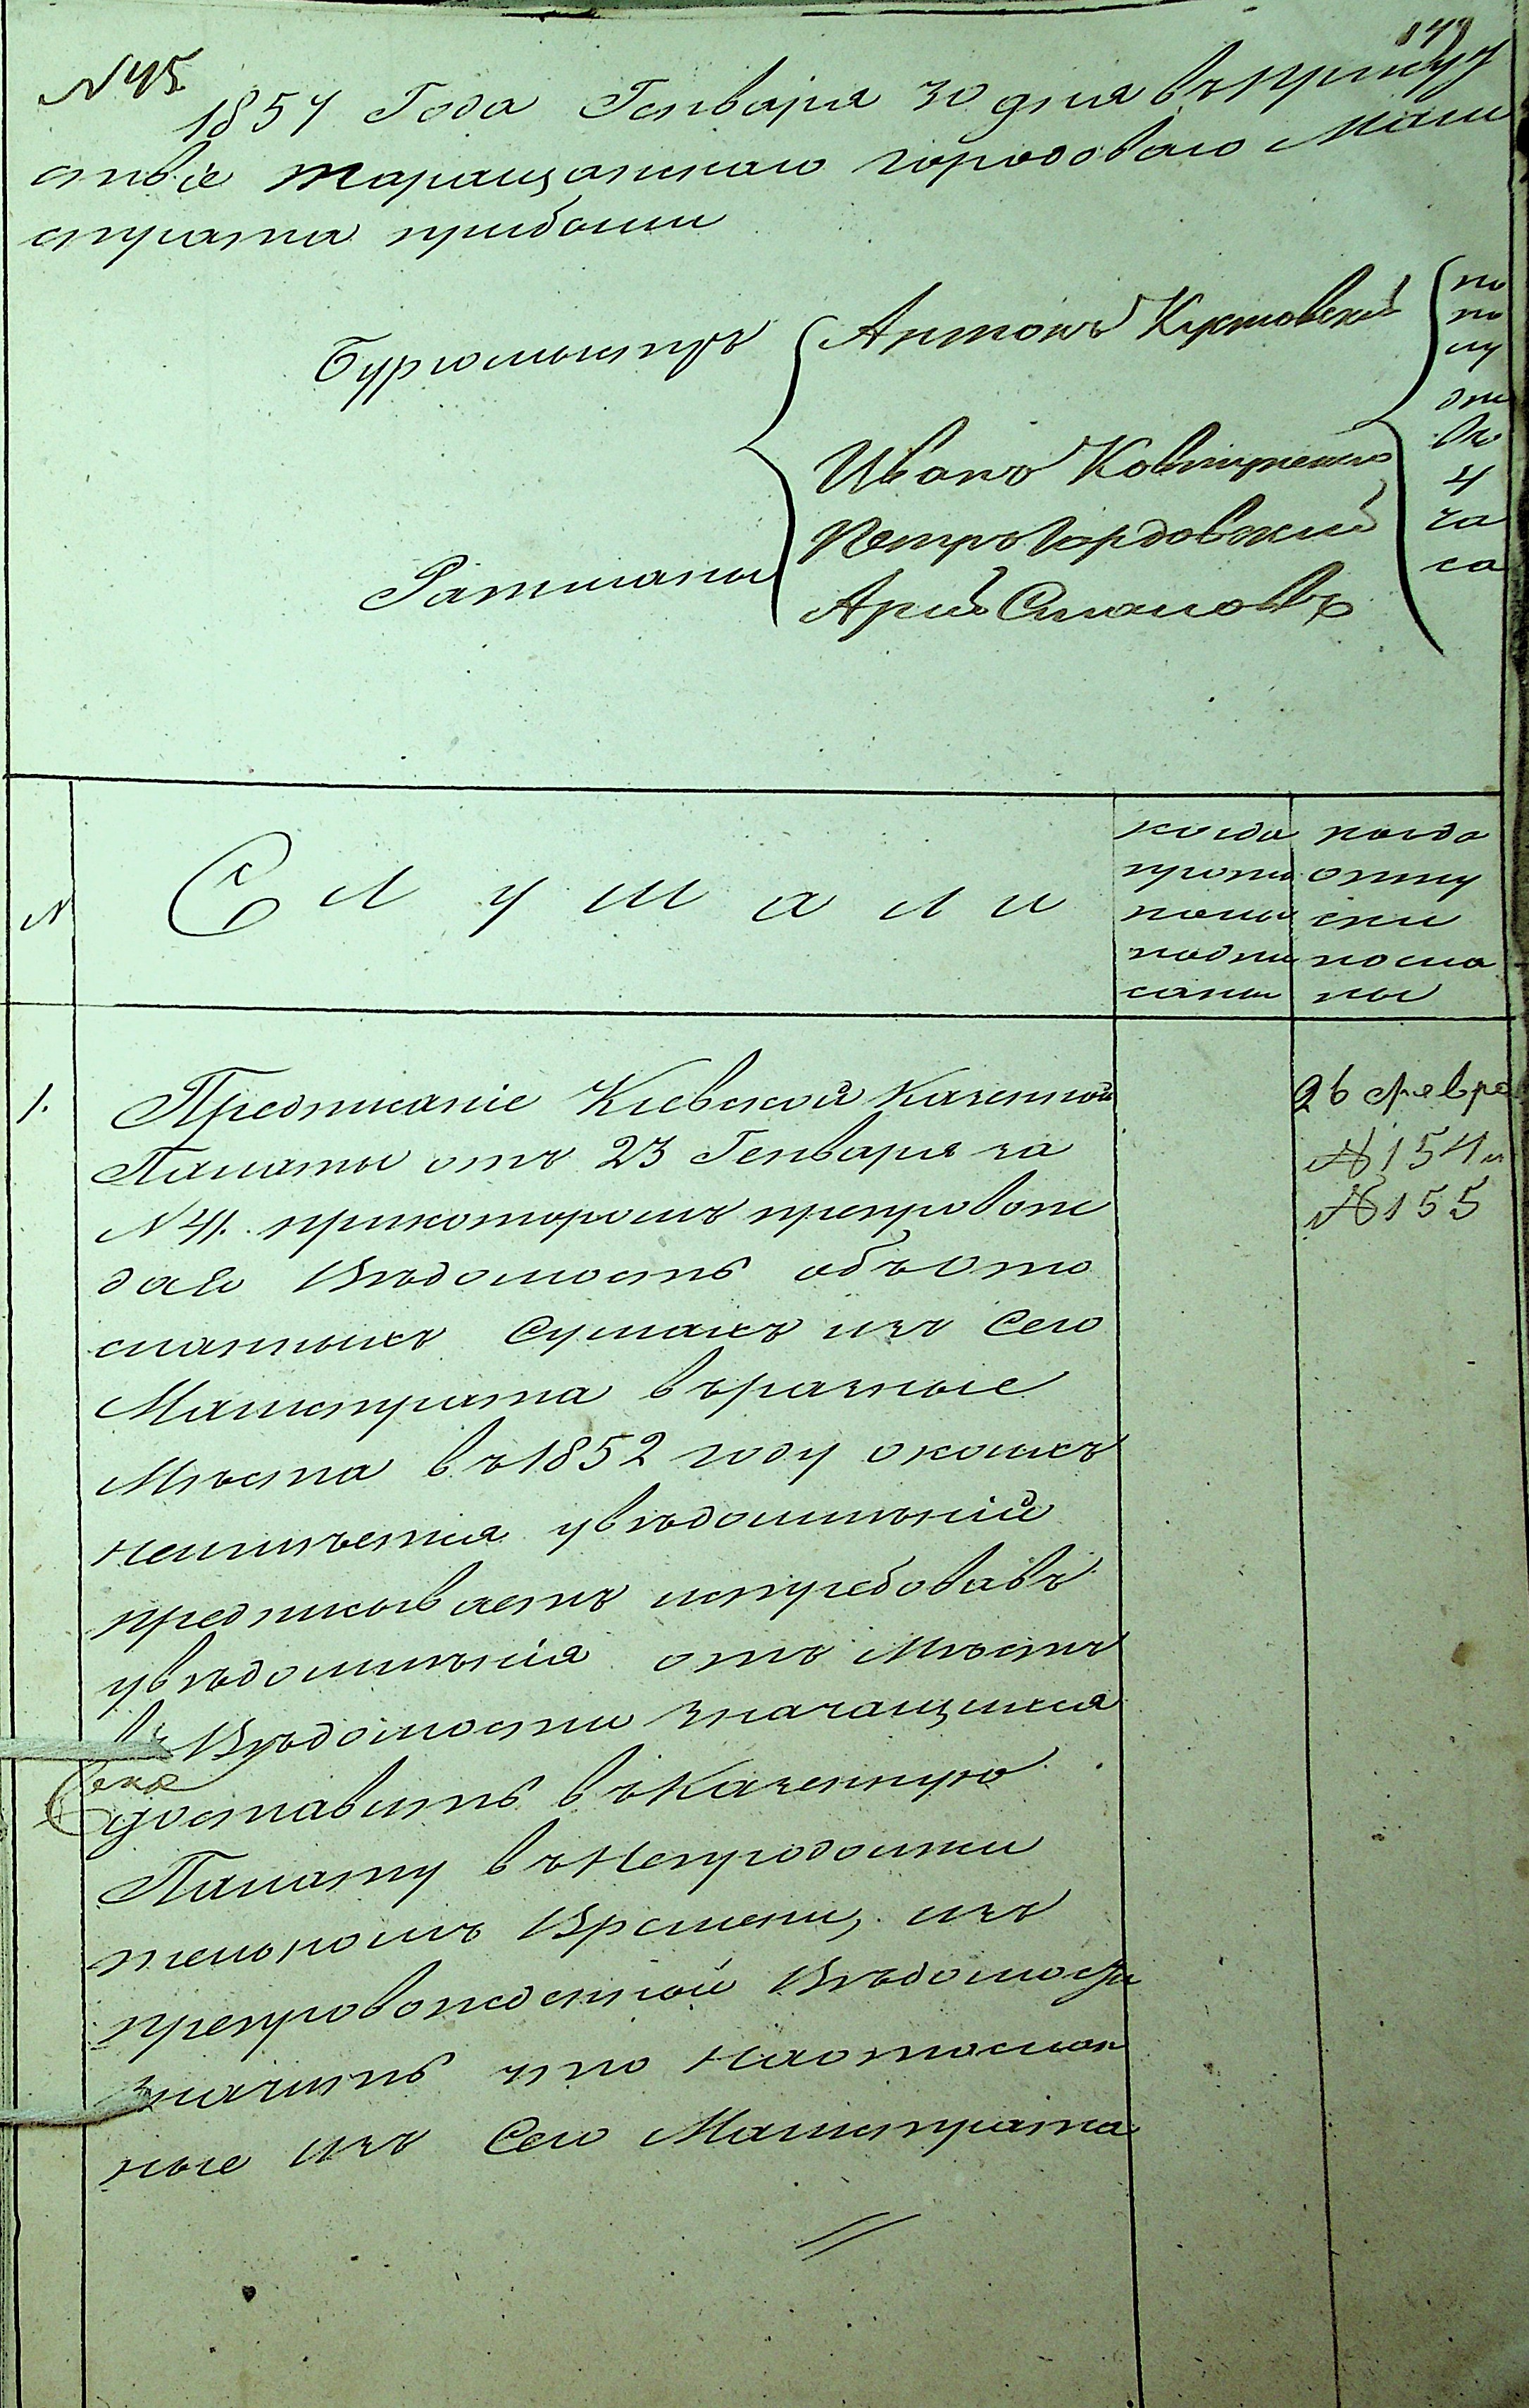 149
N 45
1854 Года Генваря 30 дня въ прису
ствіе Таращанскаго городоваго Маги
страта прибыли
Бургомистръ
Антонъ
Иванъ
Петръ Гордовский
Ратманы
по
по
лу
дни
до
4
ча
са
N
Слушали
когда
прото
колы
подпи
саны
когда
отпу
ски
посла
ны
1.
Предписаніе Кіевской Казенной
Палаты отъ 23 Генваря за
N 41. прикоторомъ препровож
дая Вѣдомость объ Ото
сланныхъ Сумахъ изъ Сего
Магистрата въ разные
Мѣста въ 1852 году о коихъ
неимѣется увѣдомлѣній
предписываетъ истребовавъ
увѣдомлѣнія отъ Мѣстъ
въ Вѣдомости значащихся
доставить въ Казенную
Палату въ Непродолжи
тельномъ Времени, изъ
препровожденной Вѣдомости
значитъ что наотослан
ные изъ Сего Магистрата
26 Февра
№ 154 и
№ 155